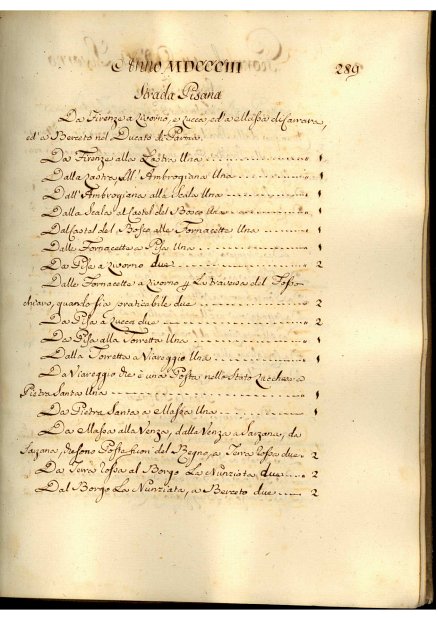 Anno MDCCCIII
289
Strada Pisana
Da Firenze a Livorno, e Lucca, ed'a Massa di Carrara,
ed'a Berceto nel Ducato di Parma.
Da Firenze alla Lastra Una 1
Dalla Lastra all'Ambrogiana Una 1
Dall'Ambrogiana alla Scala Una 1
Dalla Scala al Castel del Bosco Una 1
Dal Castel del Bosco alle Fornacette Una 1
Dalle Fornacette a Pisa Una 1
Da Pisa a Livorno due 2
Dalle Fornacette a Livorno p La traversa del Fosso
chiaro, quando sia praticabile due 2
Da Pisa a Lucca due 2
Da Pisa alla Torretta Una 1
Dalla Torretta a Viareggio Una 1
Da Viareggio che è una Posta nello Stato Lucchese a
Pietra Santa Una 1
Da Pietra Santa a Massa Una 1
Da Massa alla Venza, dalla Venza a Sarzana, da
Sarzana, che sono Poste fuori del Regno, a Terra rossa due 2
Da Terra rossa al Borgo La Nunziata due 2
Dal Borgo La Nunziata, a Berceto due 2